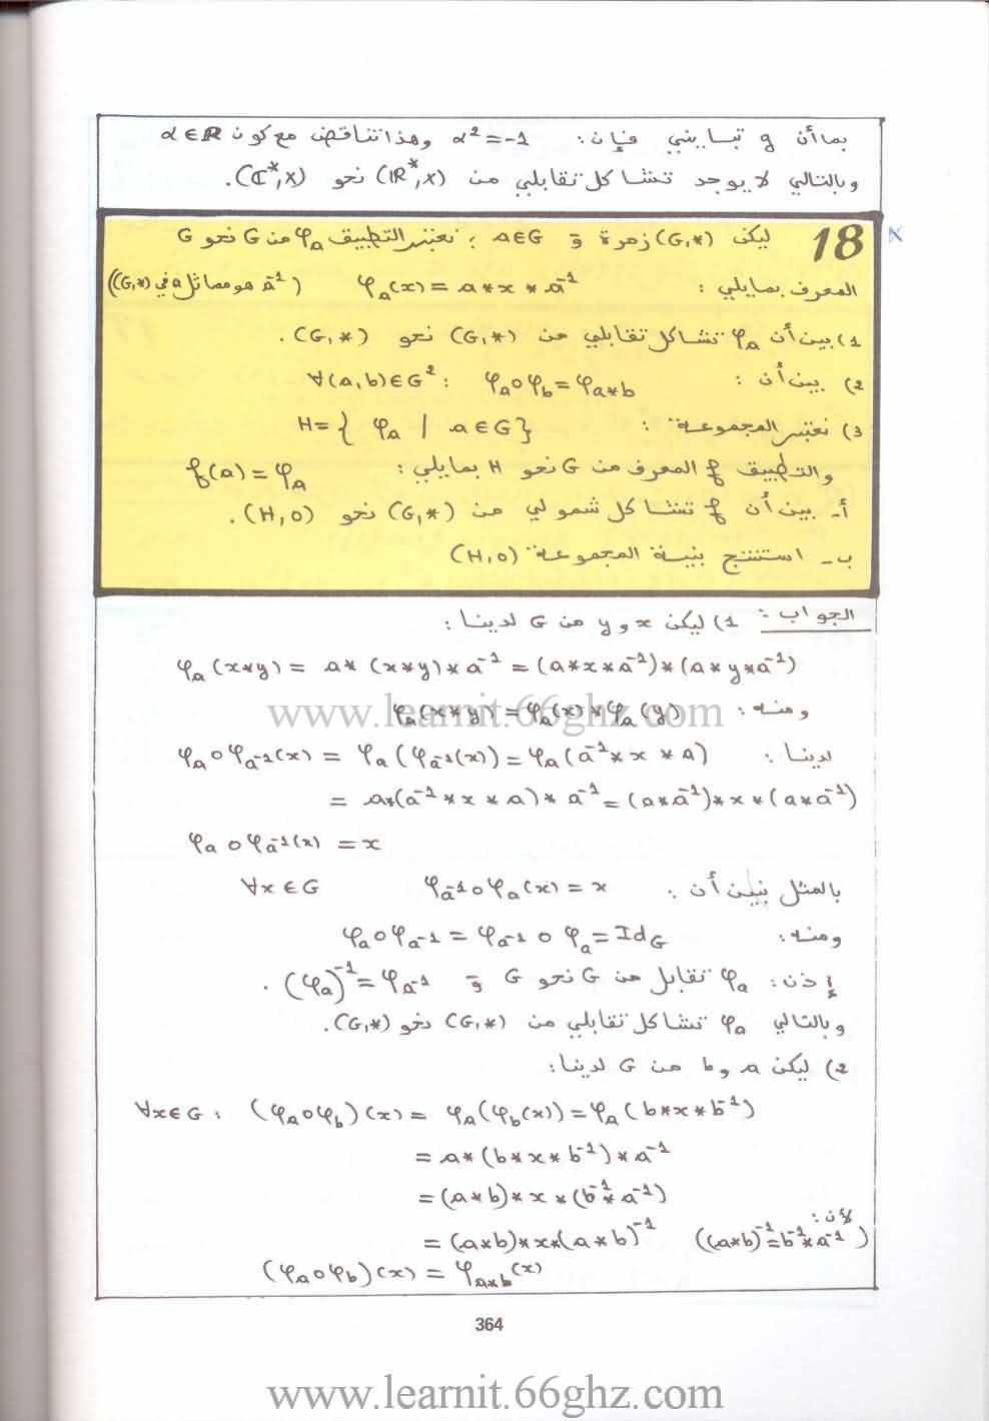 بما أن g تبايني فإن: α²=-1 وهذا تناقض مع كون α∈ℝ
وبالتالي لا يوجد تشاكل تقابلي من (ℝ*,×) نحو (ℂ*,×).
18 ليكن (G,*) زمرة و a∈G ; نعتبر التطبيق φₐ من G نحو G
المعرف بمايلي: φₐ(x)=a*x*a⁻¹ (a⁻¹ هو مماثل a في (G,*))
1) بين أن φₐ تشاكل تقابلي من (G,*) نحو (G,*).
2) بين أن: ∀(a,b)∈G²: φₐoφ_b=φ_{a*b}
3) نعتبر المجموعة: H={ φₐ / a∈G}
والتطبيق f المعرف من G نحو H بمايلي: f(a)=φₐ
أ- بين أن f تشاكل شمولي من (G,*) نحو (H,o).
ب- استنتج بنية المجموعة (H,o)
الجواب: 1) ليكن x و y من G لدينا:
φₐ(x*y)= a*(x*y)*a⁻¹=(a*x*a⁻¹)*(a*y*a⁻¹)
ومنه: φₐ(x*y)=φₐ(x)*φₐ(y)
www.learnit.66ghz.com
لدينا: φₐoφ_{a⁻¹}(x) = φₐ(φ_{a⁻¹}(x))=φₐ(a⁻¹*x*a)
= a*(a⁻¹*x*a)*a⁻¹=(a*a⁻¹)*x*(a*a⁻¹)
φₐoφ_{a⁻¹}(x) = x
بالمثل نبين أن: φ_{a⁻¹}oφₐ(x)=x ∀x∈G
ومنه: φₐoφ_{a⁻¹}=φ_{a⁻¹}oφₐ=Id_G
إذن: φₐ تقابل من G نحو G و (φₐ)⁻¹=φ_{a⁻¹}.
وبالتالي φₐ تشاكل تقابلي من (G,*) نحو (G,*).
2) ليكن a و b من G لدينا:
∀x∈G: (φₐoφ_b)(x)= φₐ(φ_b(x))=φₐ(b*x*b⁻¹)
= a*(b*x*b⁻¹)*a⁻¹
=(a*b)*x*(b⁻¹*a⁻¹)
=(a*b)*x*(a*b)⁻¹ (لأن: (a*b)⁻¹=b⁻¹*a⁻¹)
(φₐoφ_b)(x)=φ_{a*b}(x)
364
www.learnit.66ghz.com